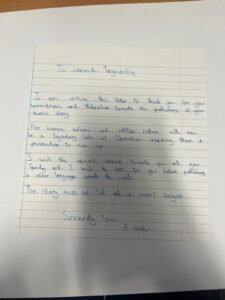 To Leonid
I am writing this letter to thank you for your
commitment and dedication towards the publishing of your
story.
Her heroic actions and selfless nature will now
be a legendary tale of liberation inspiring those in
persecution to rise up.
I wish the upmost respect towards you and your
family and I wish the best for your future publishing
in other languages around the world.
The story must be told and we mustn't forget.
Sincerely
A reader.